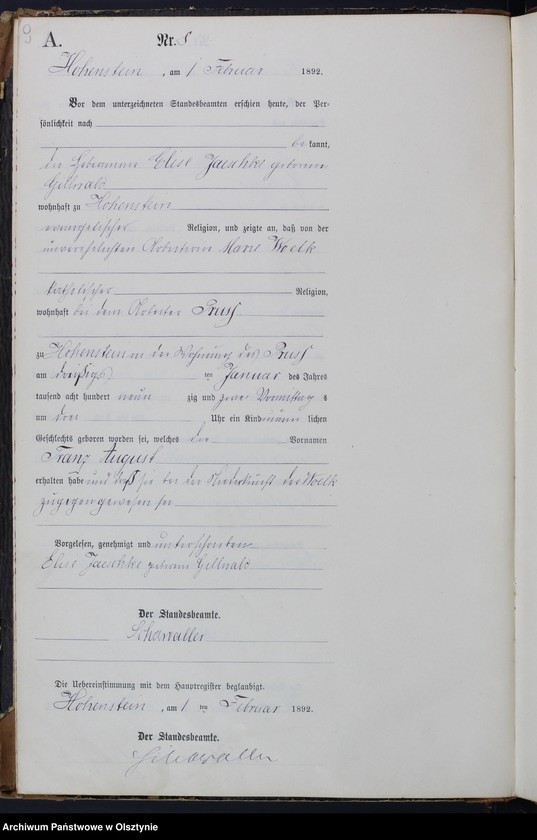 9
A.
Nr. 8
Hohenstein, am 1 Februar 1892.
Vor dem unterzeichneten Standesbeamten erschien heute, der Per-
sönlichkeit nach
be kannt,
die Hebeamme Elise Jaeschke geborene
Gillwald
wohnhaft zu Hohenstein
evangelischer Religion, und zeigte an, daß von der
unverehelichten Arbeiterin Marie Woelk
katholischer Religion,
wohnhaft bei dem Arbeiter Pruss
zu Hohenstein in der Wohnung des Pruss
am dreißigsten Januar des Jahres
tausend acht hundert neunzig und zwei Vormittag s
um drei Uhr ein Kind männ lichen
Geschlechts geboren worden sei, welches die Vornamen
Franz August
erhalten habe und daß sie bei der Niederkunft der Woelk
zugegen gewesen sei
Vorgelesen, genehmigt und unterschrieben
Elise Jaeschke geborene Gillwald
Der Standesbeamte.
Schawaller
Die Uebereinstimmung mit dem Hauptregister beglaubigt.
Hohenstein, am 1 ten Februar 1892.
Der Standesbeamte.
Schawaller
Archiwum Państwowe w Olsztynie